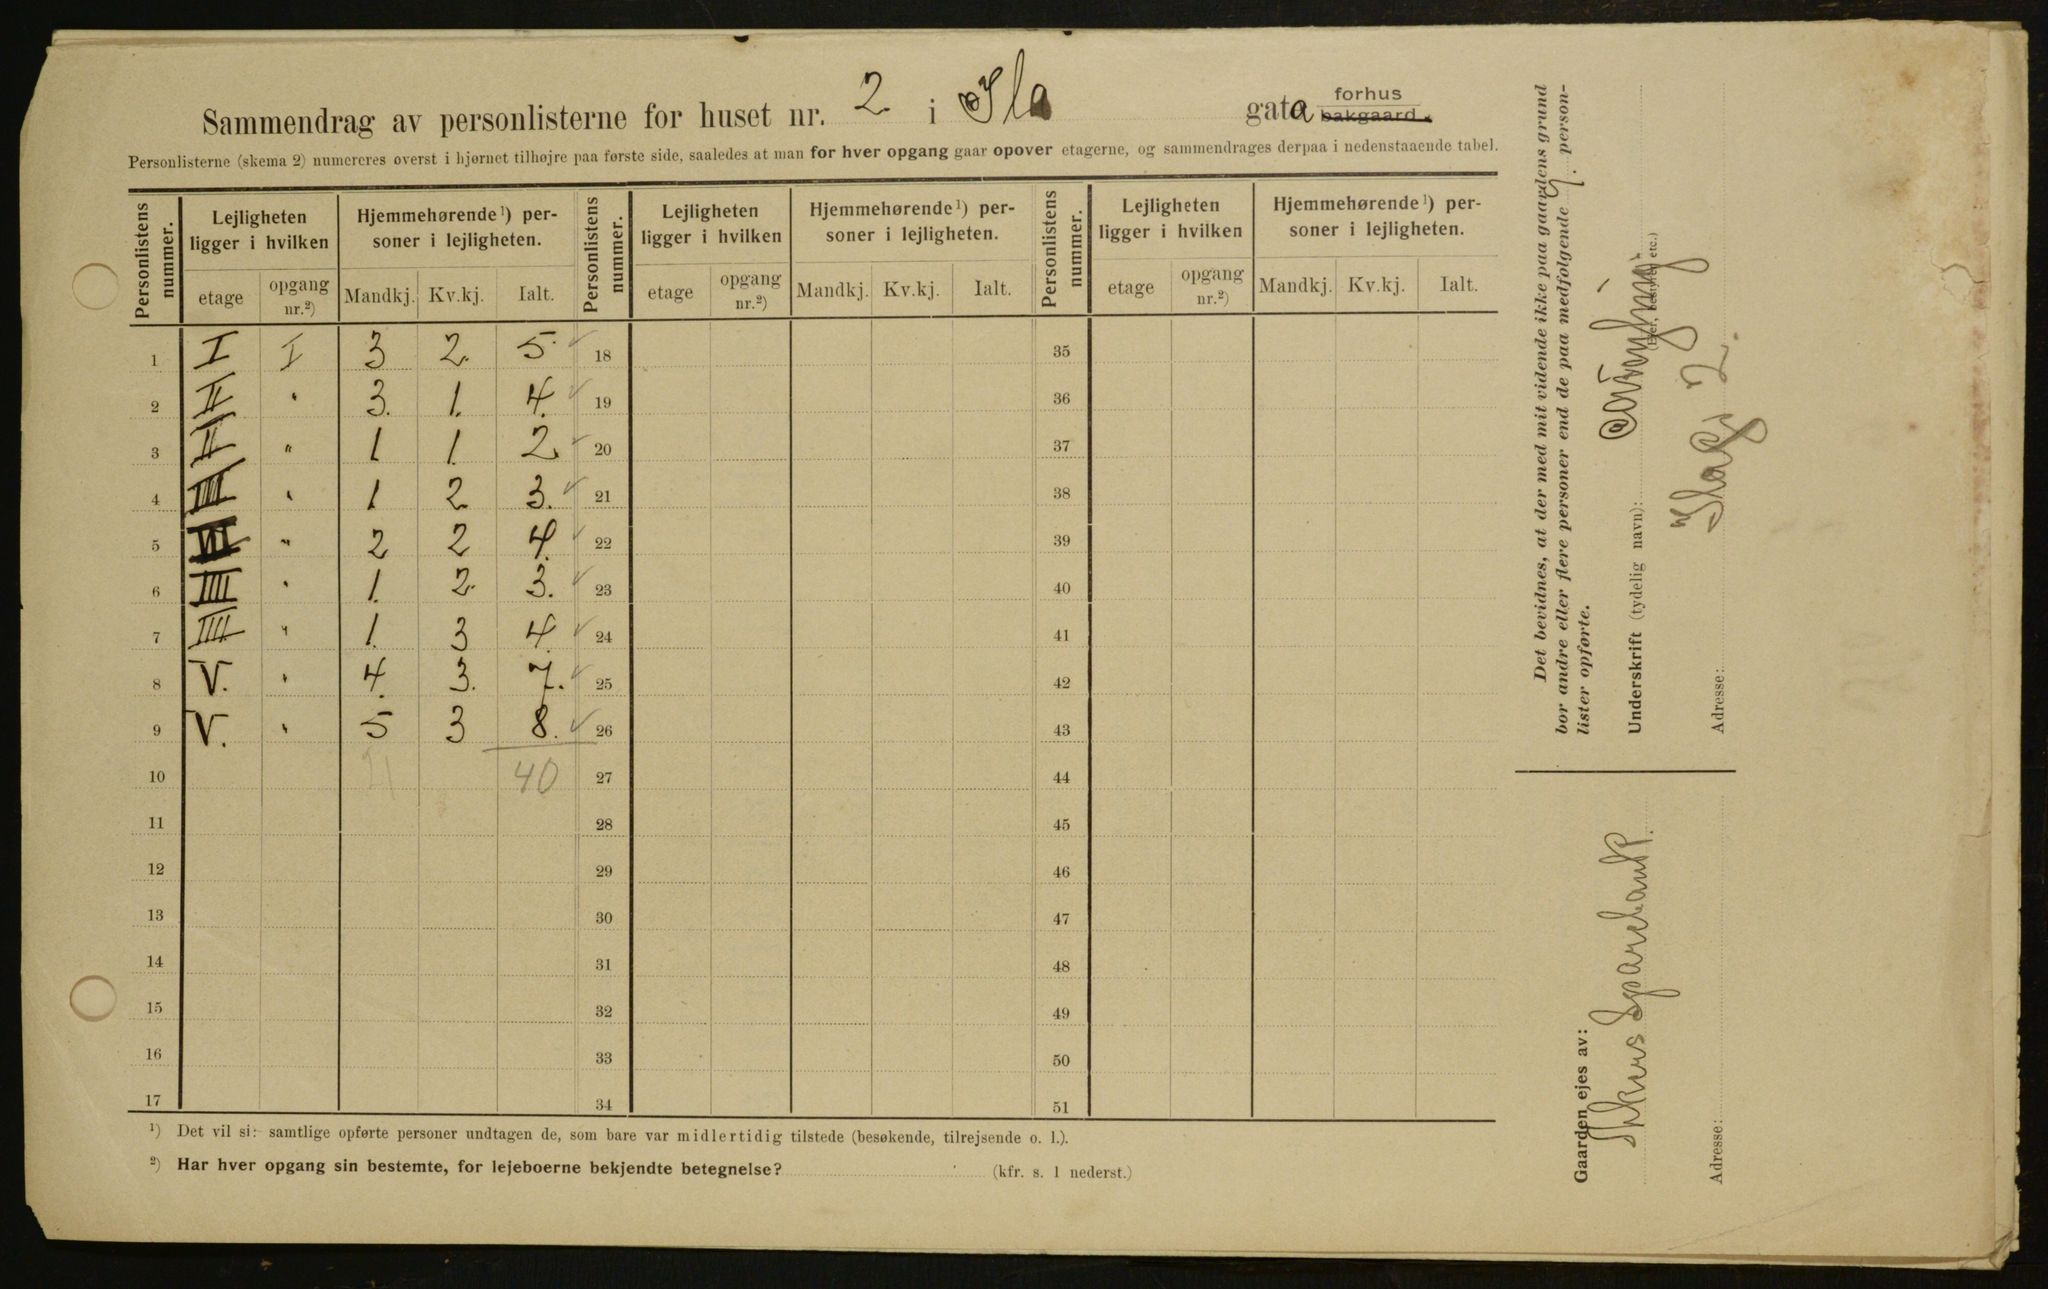 Sammendrag av personlisterne for huset nr. 2 i Ila gata forhus bakgaard.
Personlisterne (skema 2) numereres øverst i hjørnet tilhøjre paa første side, saaledes at man for hver opgang gaar opover etagerne, og sammendrages derpaa i nedenstaaende tabel.
Personlistens nummer. Lejligheten ligger i hvilken Hjemmehørende¹) personer i lejligheten. Personlistens nummer. Lejligheten ligger i hvilken Hjemmehørende¹) personer i lejligheten. Personlistens nummer. Lejligheten ligger i hvilken Hjemmehørende¹) personer i lejligheten.
etage opgang nr.²) Mandkj. Kv.kj. Ialt. etage opgang nr.²) Mandkj. Kv.kj. Ialt. etage opgang nr.²) Mandkj. Kv.kj. Ialt.
1 I I 3 2. 5. 18 35
2 II " 3. 1. 4. 19 36
3 II " 1 1. 2. 20 37
4 III " 1 2 3. 21 38
5 III " 2 2 4. 22 39
6 IIII " 1. 2. 3. 23 40
7 IIII " 1. 3 4. 24 41
8 V. " 4. 3. 7. 25 42
9 V. " 5 3 8. 26 43
10 21 40 27 44
11 28 45
12 29 46
13 30 47
14 31 48
15 32 49
16 33 50
17 34 51
¹) Det vil si: samtlige opførte personer undtagen de, som bare var midlertidig tilstede (besøkende, tilrejsende o. l.).
²) Har hver opgang sin bestemte, for lejeboerne bekjendte betegnelse? (kfr. s. 1 nederst.)
Det bevidnes, at der med mit vidende ikke paa gaardens grund
bor andre eller flere personer end de paa medfølgende 9. person-
lister opførte.
Underskrift (tydelig navn):
(Eier, bestyrer etc.)
Adresse: Ilag 2.
Gaarden ejes av:
Akers Sparebank.
Adresse: